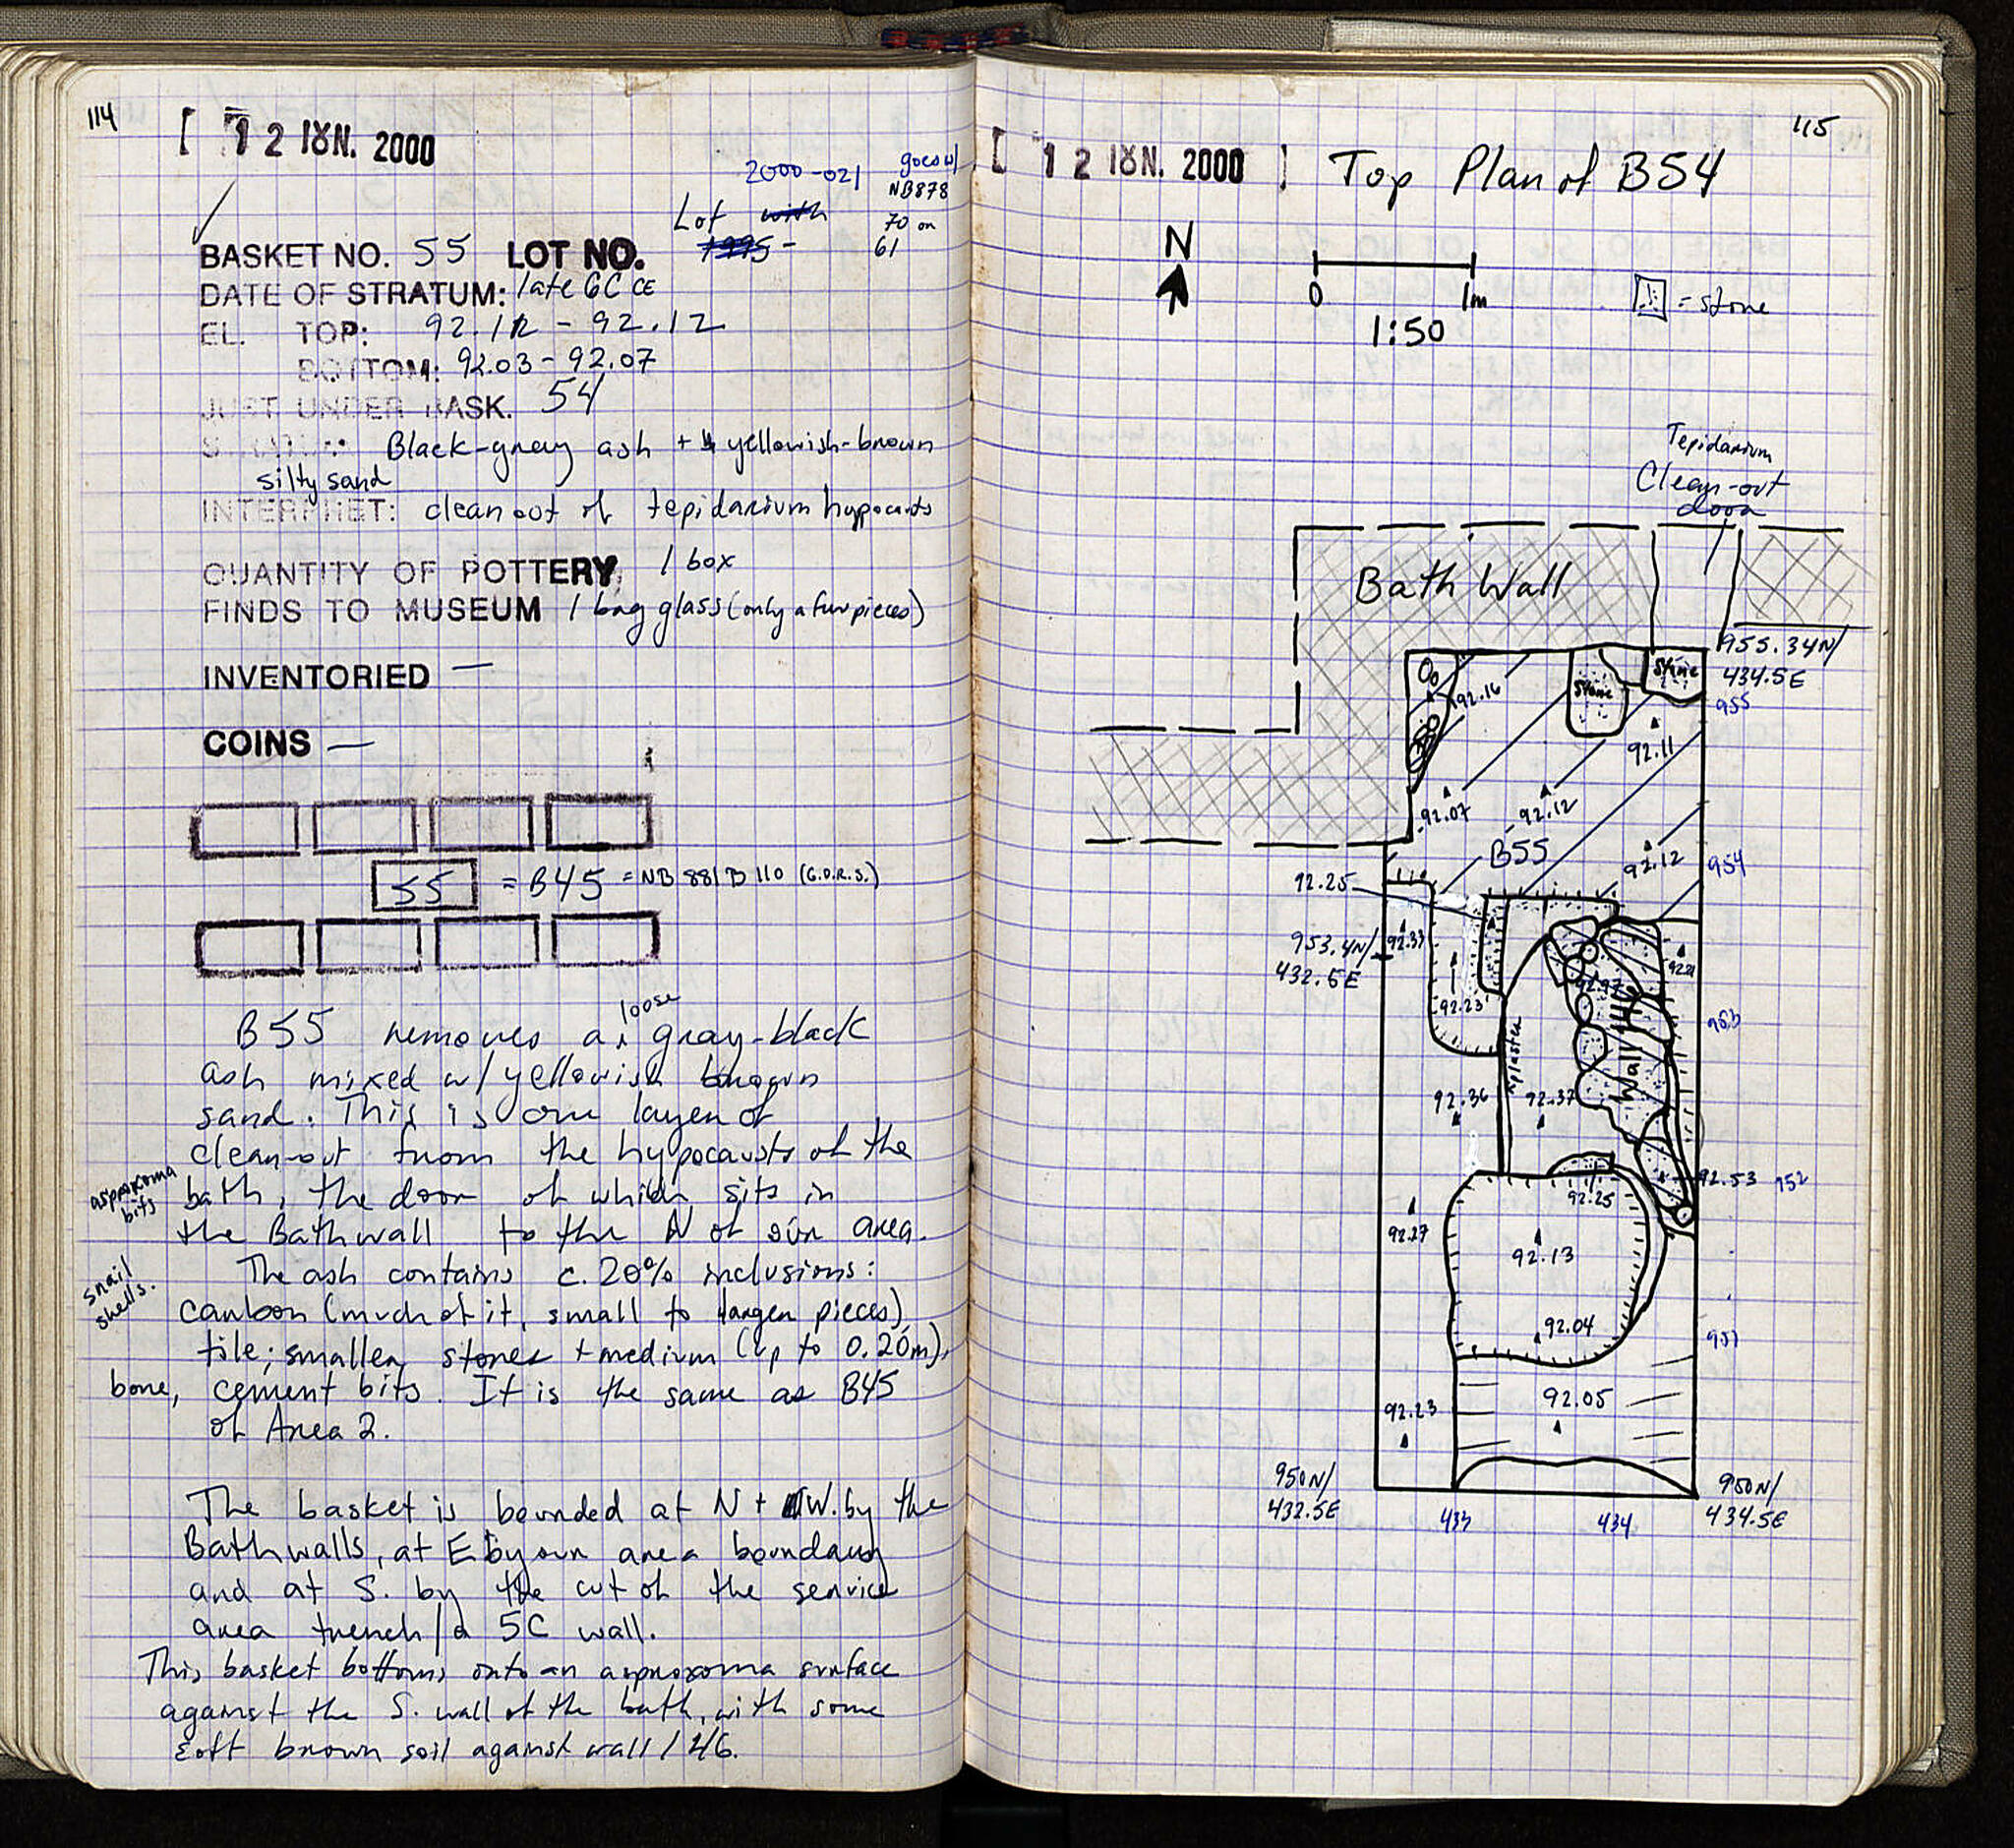 114
[ 12 ΙΟΥΝ. 2000
2000-021
goes w/
NB878
70 on
61
Lot with
1995 -
BASKET NO. 55 LOT NO.
DATE OF STRATUM: late 6C CE
EL. TOP: 92.12 - 92.12
BOTTOM: 92.03 - 92.07
JUST UNDER BASK. 54
STRATUM: Black-gray ash + yellowish-brown
silty sand
INTERPRET: clean out of tepidarium hypocausts
QUANTITY OF POTTERY 1 box
FINDS TO MUSEUM 1 bag glass (only a few pieces)
INVENTORIED —
COINS —
55 = B45 = NB 881 B 110 (G.D.R.S.)
B55 removes a loose gray-black
ash mixed w/ yellowish brown
sand. This is one layer of
clean-out from the hypocausts of the
bath, the door of which sits in
the Bath wall to the N of our area.
asproxoma
bits
The ash contains c. 20% inclusions:
snail
shells.
carbon (much of it, small to larger pieces),
tile; smaller stones + medium (up to 0.20m),
bone, cement bits. It is the same as B45
of Area 2.
The basket is bounded at N + W. by the
Bath walls, at E by our area boundary
and at S. by the cut of the service
area trench / a 5C wall.
This basket bottoms onto an asproxoma surface
against the S. wall of the bath, with some
soft brown soil against wall 146.
115
[ 12 ΙΟΥΝ. 2000 ] Top Plan of B54
N
0 1m
1:50
= stone
Tepidarium
Clean-out
door
Bath Wall
955.34N/
434.5E
955
stone
stone
92.16
92.11
92.07
92.12
B55
92.12
954
92.25
953.4N/
432.5E
92.33
92.23
92.97
92.21
953
plaster
Wall 146
92.36
92.37
92.53
952
92.25
92.27
92.13
92.04
951
92.05
92.23
950N/
432.5E
433
434
950N/
434.5E